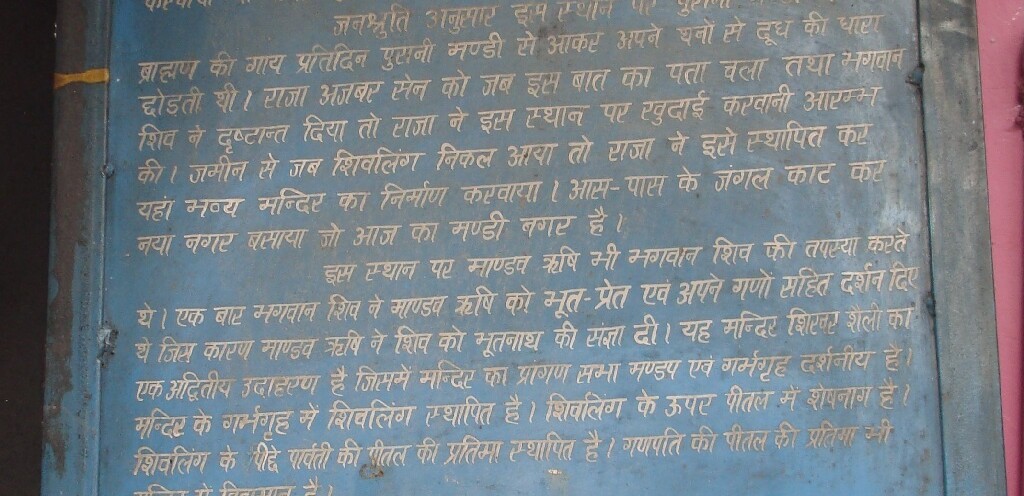 करवाया
जनश्रुति अनुसार इस स्थान पर पुरानी
ब्राह्मण की गाय प्रतिदिन पुरानी मण्डी से आकर अपने थनों से दूध की धारा
छोड़ती थी। राजा अजबर सेन को जब इस बात का पता चला तथा भगवान
शिव ने दृष्टान्त दिया तो राजा ने इस स्थान पर खुदाई करवानी आरम्भ
की। जमीन से जब शिवलिंग निकल आया तो राजा ने इसे स्थापित कर
यहां भव्य मन्दिर का निर्माण करवाया। आस-पास के जंगल काट कर
नया नगर बसाया जो आज का मण्डी नगर है।
इस स्थान पर माण्डव ऋषि भी भगवान शिव की तपस्या करते
थे। एक बार भगवान शिव ने माण्डव ऋषि को भूत-प्रेत एवं अपने गणों सहित दर्शन दिए
थे जिस कारण माण्डव ऋषि ने शिव को भूतनाथ की संज्ञा दी। यह मन्दिर शिखर शैली का
एक अद्वितीय उदाहरण है जिसमें मन्दिर का प्रांगण सभा मण्डप एवं गर्भगृह दर्शनीय है।
मन्दिर के गर्भगृह में शिवलिंग स्थापित है। शिवलिंग के ऊपर पीतल में शेषनाग है।
शिवलिंग के पीछे पार्वती की पीतल की प्रतिमा स्थापित है। गणपति की पीतल की प्रतिमा भी